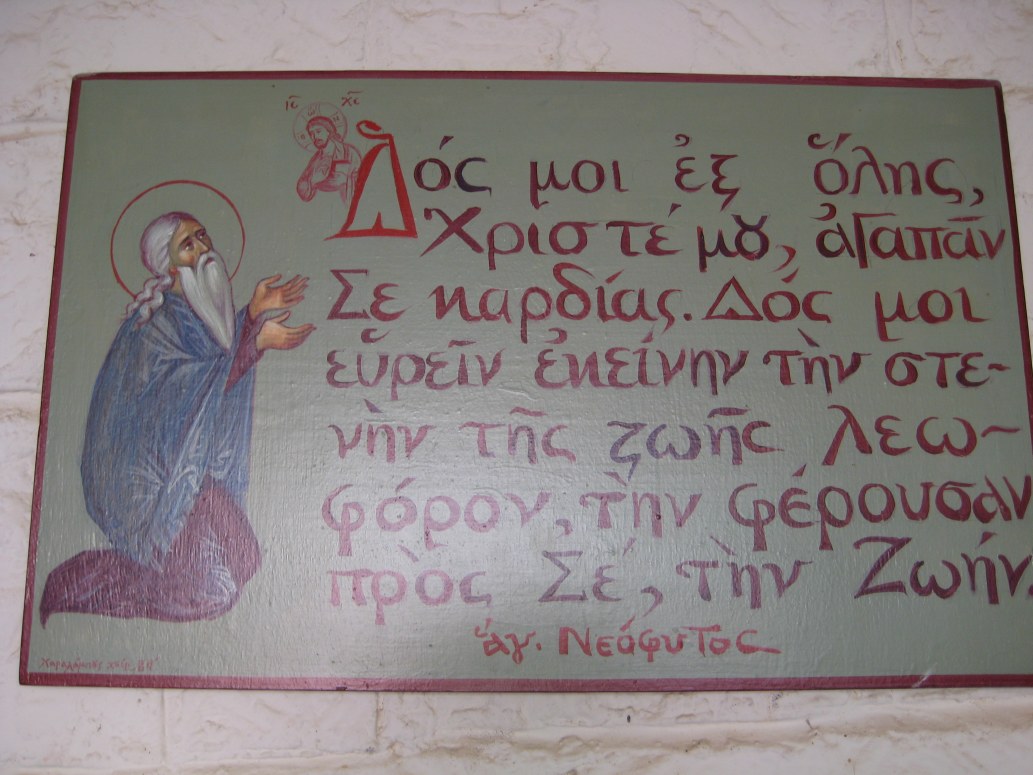 ΙC ΧC
Δός μοι ἐξ ὅλης,
Χριστέ μȣ, ἀγαπᾶν
Σε καρδίας. Δός μοι
εὑρεῖν ἐκείνην τὴν στε-
νὴν τῆς ζωῆς λεω-
φόρον, τὴν φέρουσαν
πρὸς Σέ, τὴν Ζωήν
ἁγ. Νεόφυτος